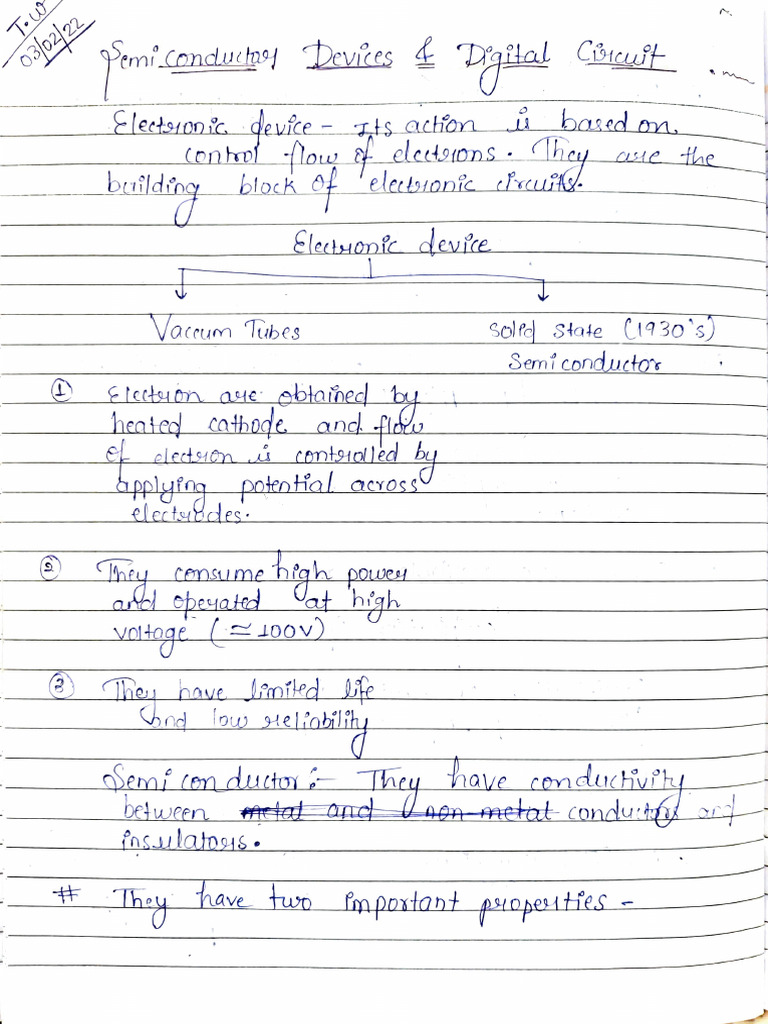 T.W
03/02/22
Semiconductors Devices & Digital Circuit
Electronic device - Its action is based on
control flow of electrons. They are the
building block of electronic circuits.
Electronic device
Vaccum Tubes
Solid State (1930's)
Semiconductor
① Electron are obtained by
heated cathode and flow
of electron is controlled by
applying potential across
electrodes.
② They consume high power
and operated at high
voltage (≃100V)
③ They have limited life
and low reliability
Semiconductor:- They have conductivity
between metal and non-metal conductors and
insulators.
# They have two important properties -